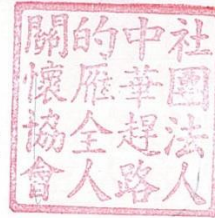 社團法人
中華趕路
的雁全人
關懷協會